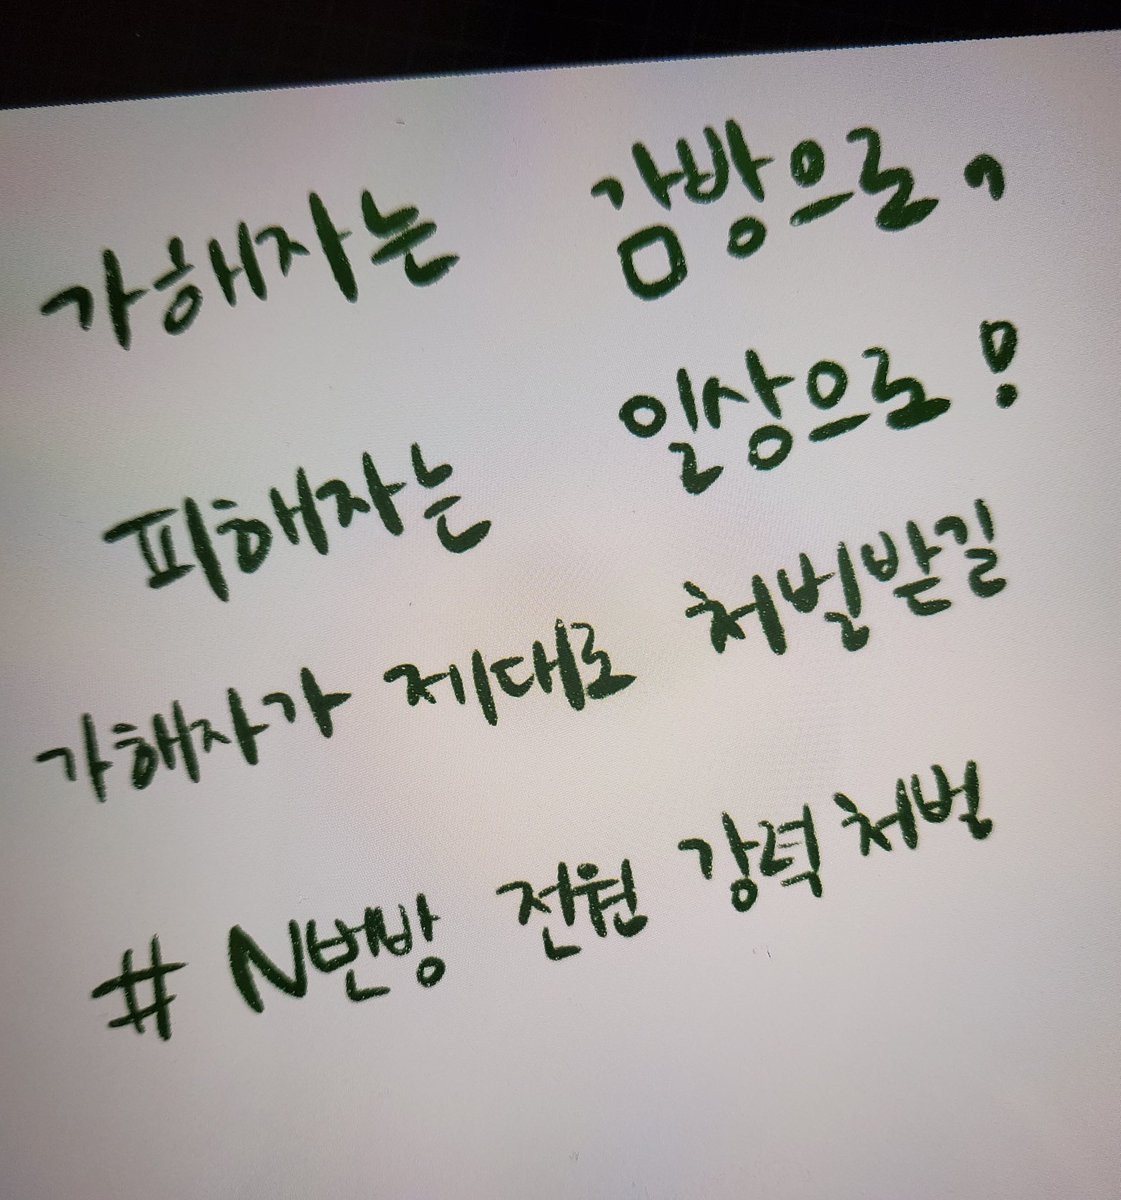 가해자는 감방으로,
피해자는 일상으로!
가해자가 제대로 처벌받길
# N번방 전원 강력처벌